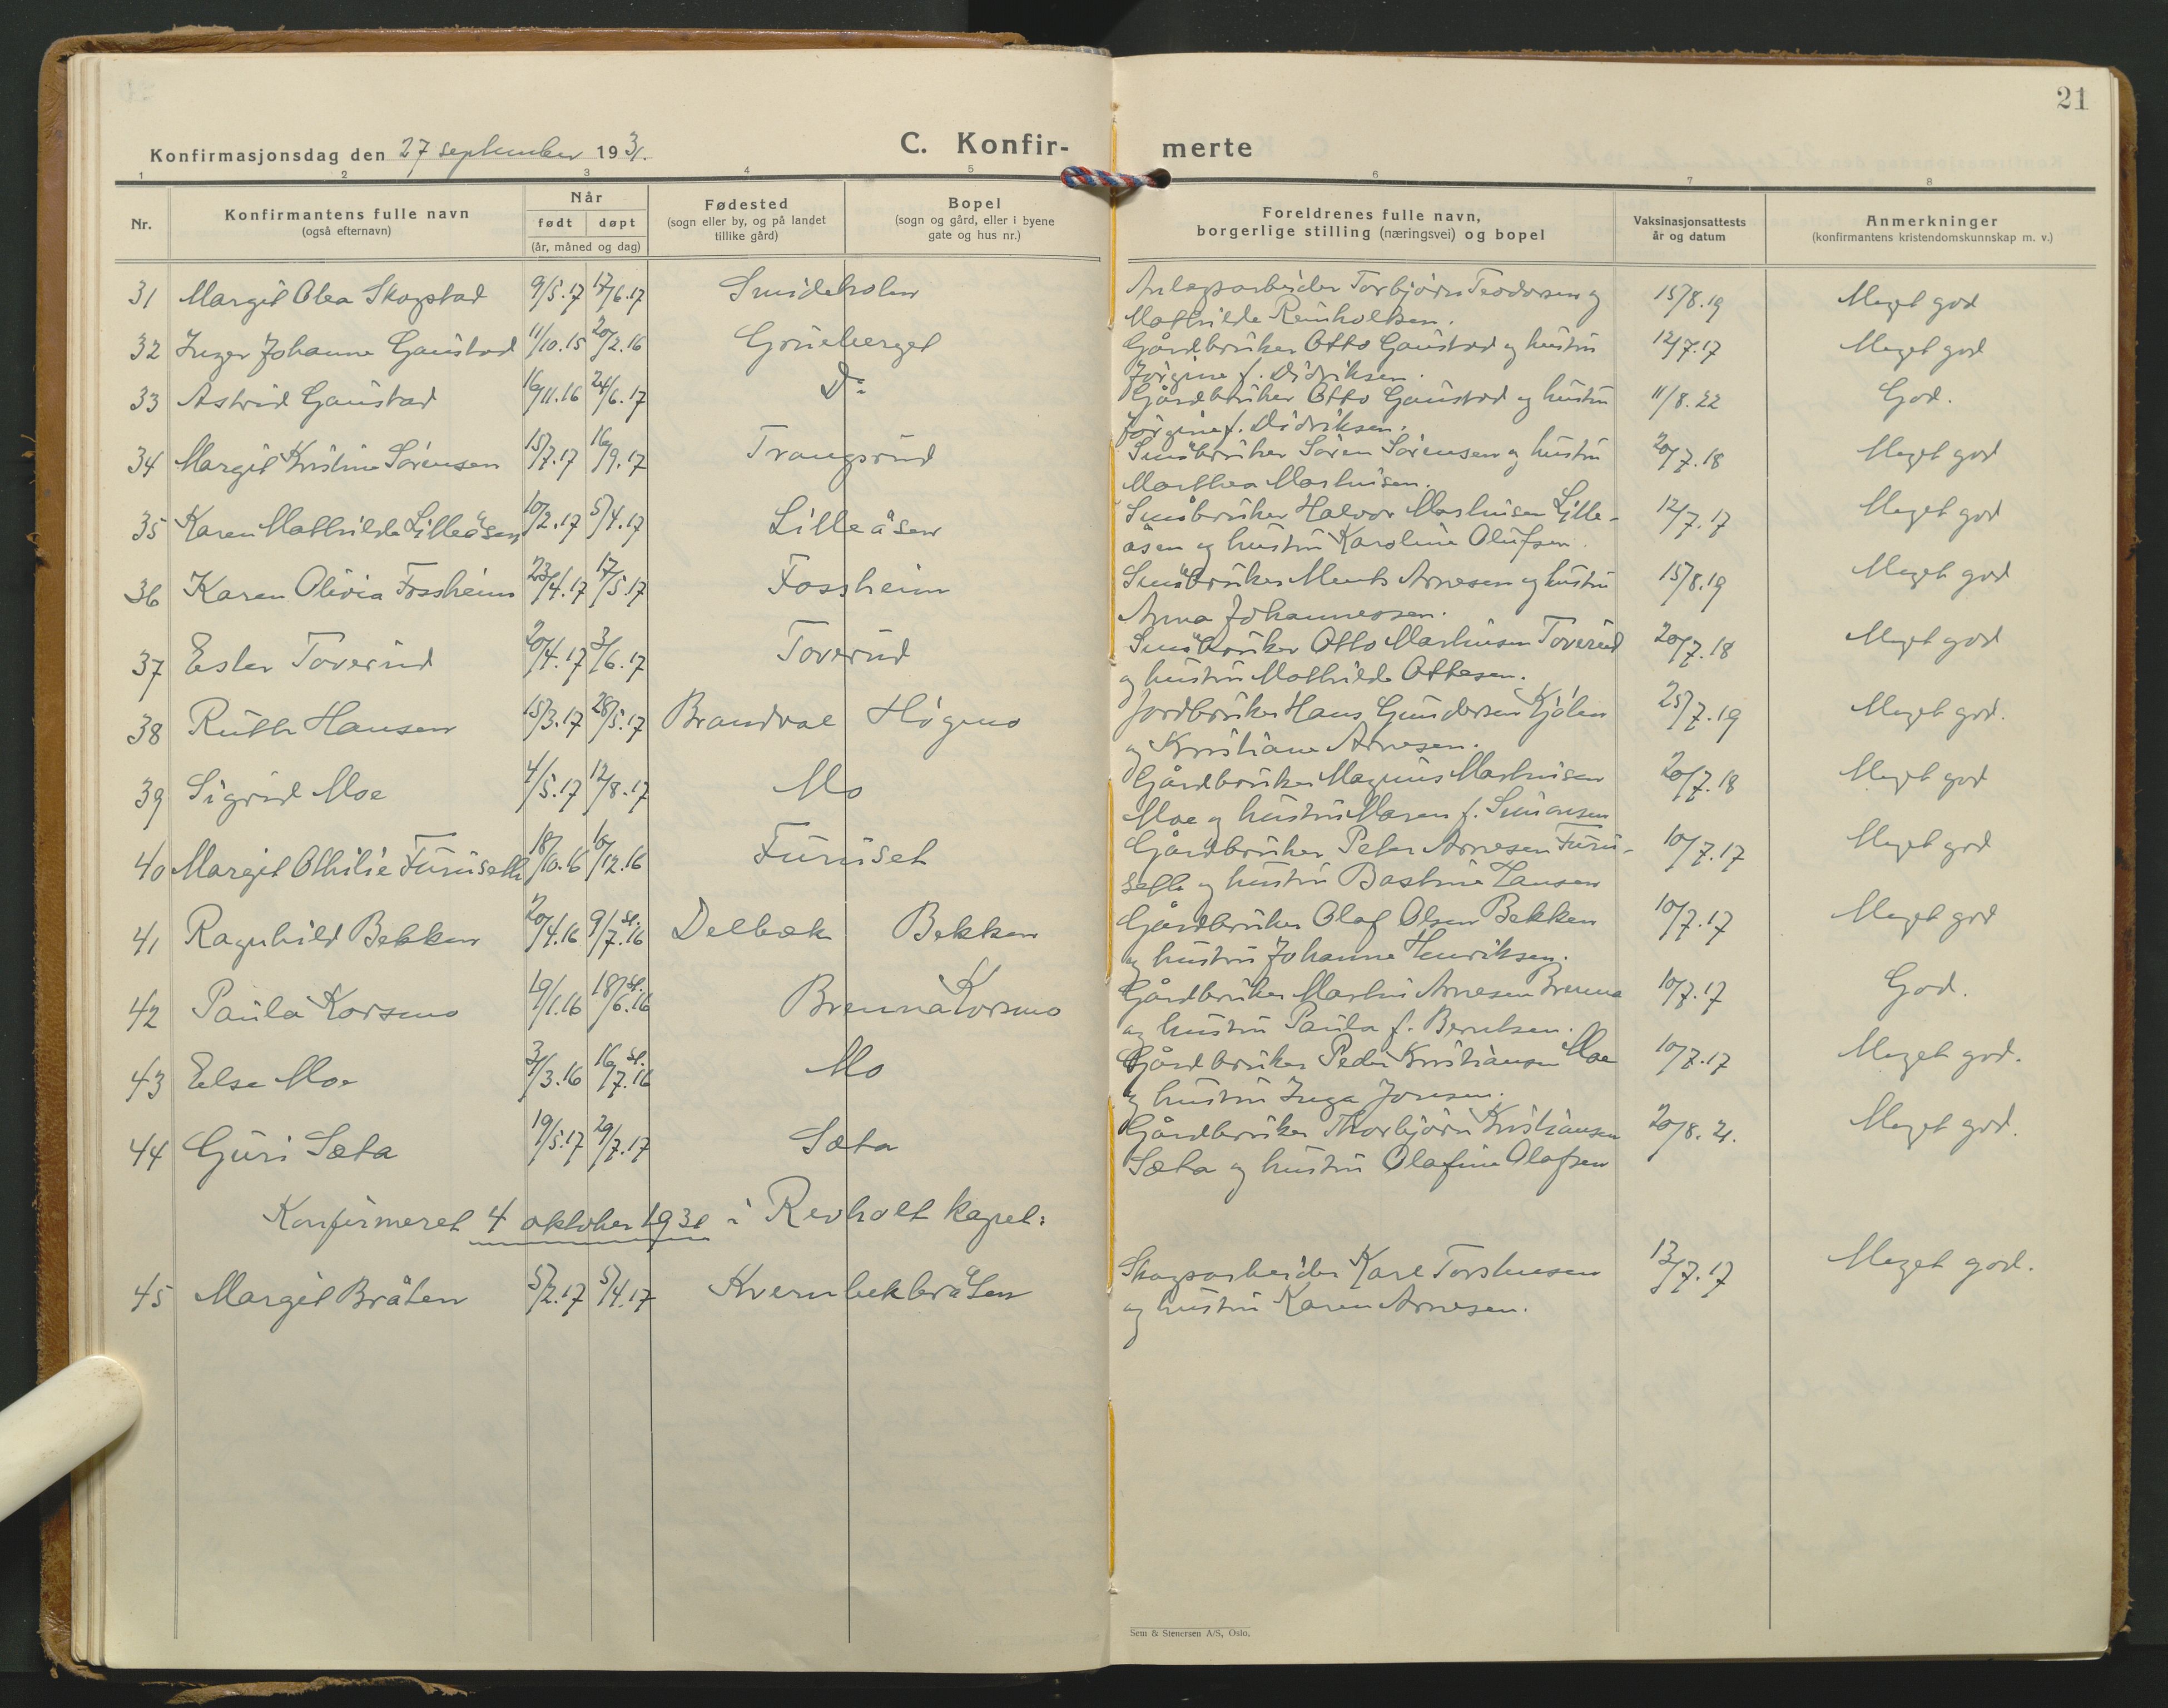 21
Konfirmasjonsdag den 27 september 1931.
C. Konfir- merte
1 2 3 4 5 6 7 8
Nr.
Konfirmantens fulle navn
(også efternavn)
Når
født døpt
(år, måned og dag)
Fødested
(sogn eller by, og på landet
tillike gård)
Bopel
(sogn og gård, eller i byene
gate og hus nr.)
Foreldrenes fulle navn,
borgerlige stilling (næringsvei) og bopel
Vaksinasjonsattests
år og datum
Anmerkninger
(konfirmantens kristendomskunnskap m. v.)
31 Margit Olea Skogstad 9/5.17 17/6.17 Smideholen Anlegsarbeider Torbjørn Teodorsen og 15/8.19 Meget god
Mathilde Reinholtsen.
32 Inger Johanne Gaustad 11/10.15 20/2.16 Grueberget Gårdbruker Otto Gaustad og hustru 12/7.17 Meget god
Jørgine f. Didriksen.
33 Astrid Gaustad 16/11.16 24/6.17 Do Gårdbruker Otto Gaustad og hustru 11/8.22 God.
Jørgine f. Didriksen.
34 Margit Kristine Sørensen 15/7.17 16/9.17 Trangsrud Småbruker Søren Sørensen og hustru 20/7.18 Meget god
Marthea Marthinsen.
35 Karen Mathilde Lilleåsen 10/2.17 5/4.17 Lilleåsen Småbruker Halvor Marthinsen Lille- 12/7.17 Meget god
åsen og hustru Karoline Olufsen.
36 Karen Olivia Fossheim 23/4.17 17/5.17 Fossheim Småbruker Ments Arnesen og hustru 15/8.19 Meget god
Anna Johannessen.
37 Ester Toverud 20/4.17 3/6.17 Toverud Småbruker Otto Marthinsen Toverud 20/7.18 Meget god
og hustru Mathilde Ottesen.
38 Ruth Hansen 15/3.17 28/5.17 Brandval Høgmo Jordbruker Hans Gundersen Kjølen 25/7.19 Meget god.
og Kristiane Arnesen.
39 Sigrid Moe 4/5.17 12/8.17 Mo Gårdbruker Magnus Marthinsen 20/7.18 Meget god
Moe og hustru Maren f. Simonsen
40 Margit Othilie Furuseth 18/10.16 10/12.16 Furuset Gårdbruker Peter Arnesen Furu- 10/7.17 Meget god
seth og hustru Bastine Hansen
41 Ragnhild Bekken 20/4.16 9/7.16 st. Delbæk Bekken Gårdbruker Olaf Olsen Bekken 10/7.17 Meget god
og hustru Johanne Henriksen.
42 Paula Korsmo 19/1.16 18/6.16 st. Brenna Korsmo Gårdbruker Martin Arnesen Brenna 10/7.17 God.
og hustru Paula f. Berntsen.
43 Else Moe 31/3.16 16/7.16 st. Mo Gårdbruker Peder Kristiansen Moe 10/7.17 Meget god.
og hustru Inga Jonsen.
44 Guri Sæta 19/5.17 29/7.17 Sæta Gårdbruker Thorbjørn Kristiansen 20/8.21. Meget god.
Sæta og hustru Olafine Olafsen
Konfirmeret 4 oktober 1931 i Revholt kapel:
45 Margit Bråten 5/2.17 5/4.17 Kvernbekbråten Skogsarbeider Karl Torstensen 13/7.17 Meget god.
og hustru Karen Arnesen.
Sem & Stenersen A/S, Oslo.